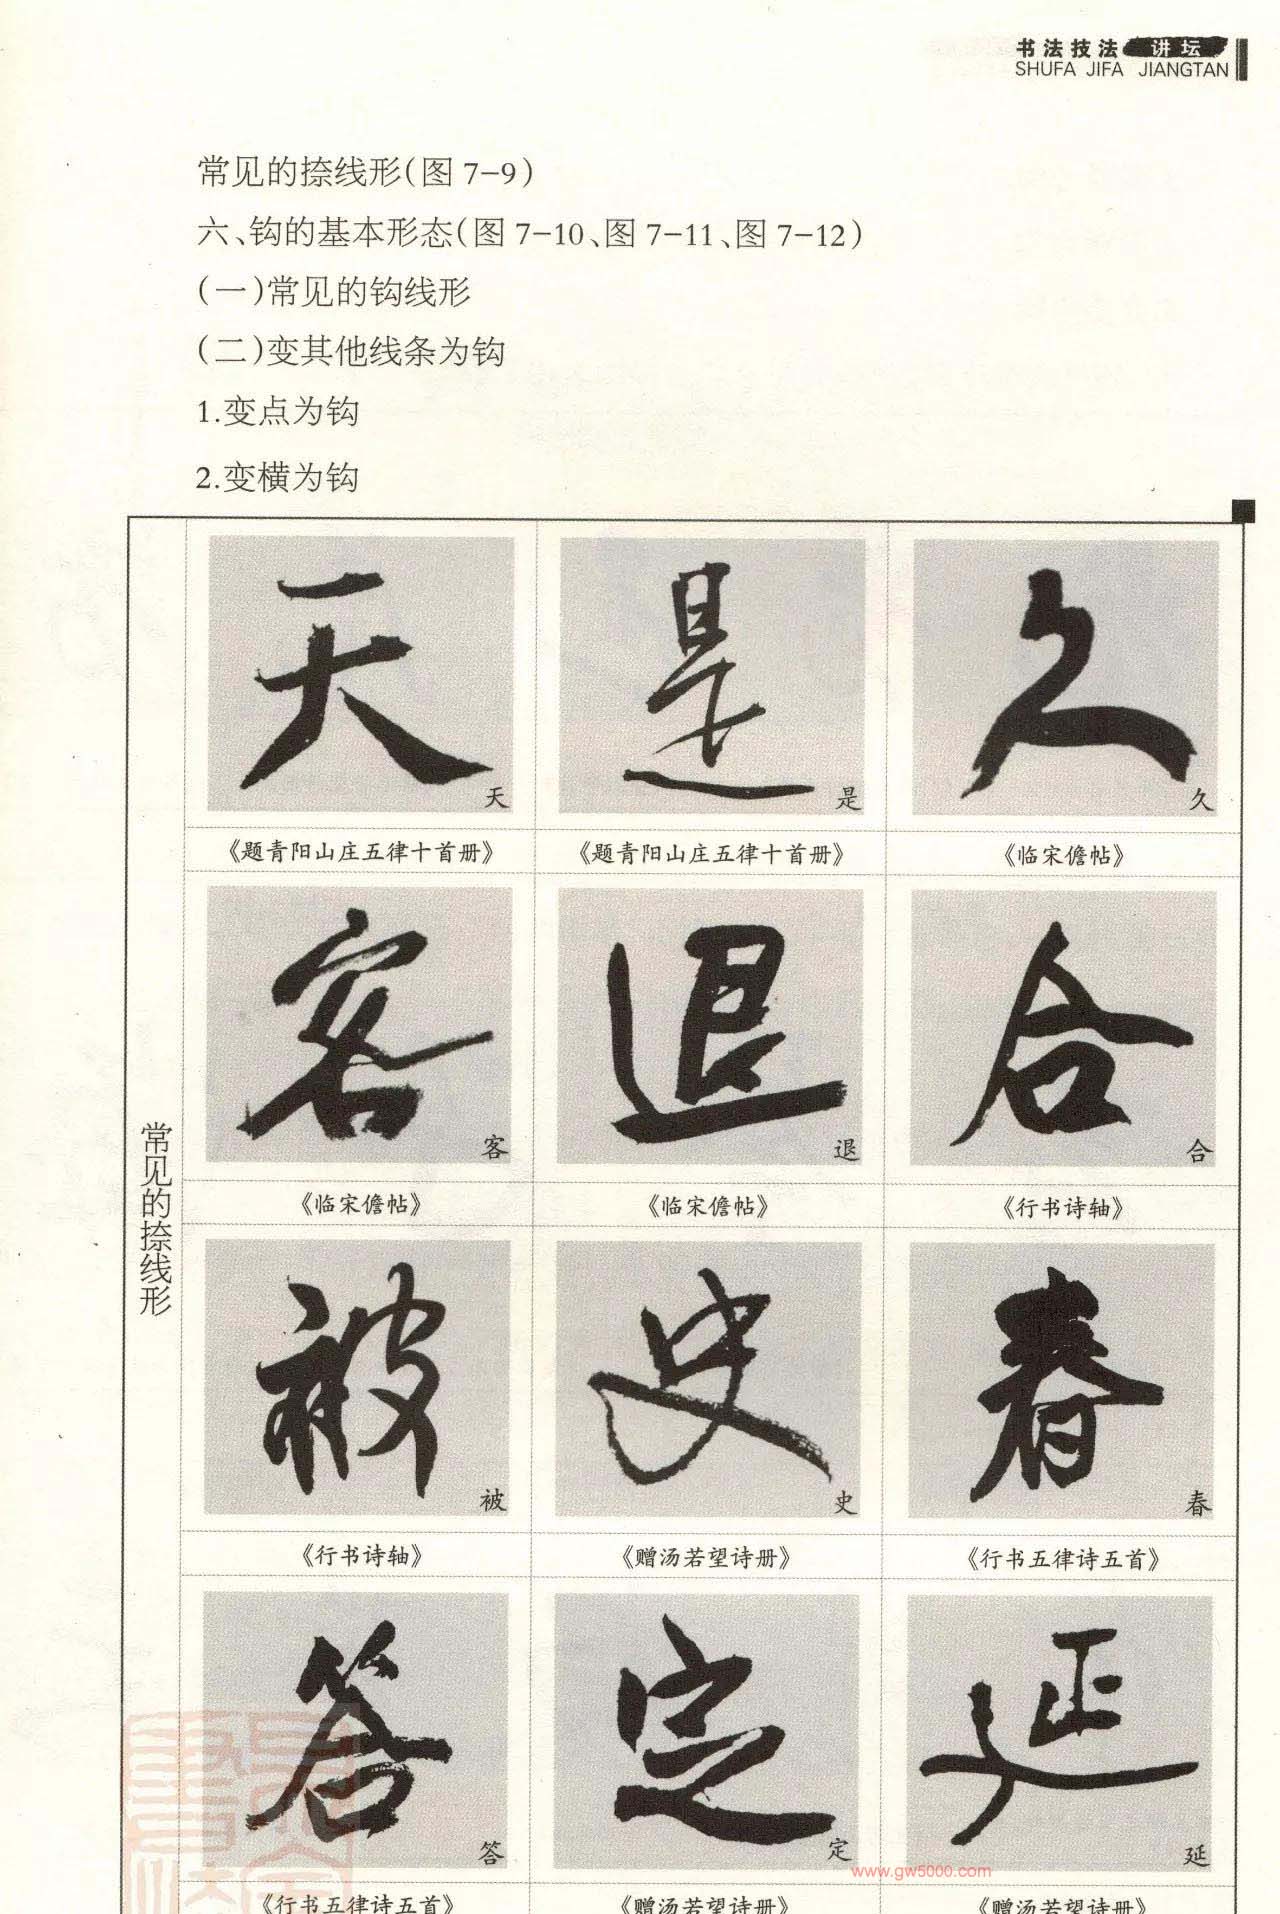 书法技法 讲坛
SHUFA JIFA JIANGTAN
常见的捺线形(图 7-9)
六、钩的基本形态(图 7-10、图 7-11、图 7-12)
(一)常见的钩线形
(二)变其他线条为钩
1.变点为钩
2.变横为钩
常见的捺线形
天 天
是 是
久 久
《题青阳山庄五律十首册》
《题青阳山庄五律十首册》
《临宋儋帖》
客 客
退 退
合 合
《临宋儋帖》
《临宋儋帖》
《行书诗轴》
被 被
史 史
春 春
《行书诗轴》
《赠汤若望诗册》
《行书五律诗五首》
答 答
定 定
延 延
www.gw5000.com
《行书五律诗五首》
《赠汤若望诗册》
《赠汤若望诗册》